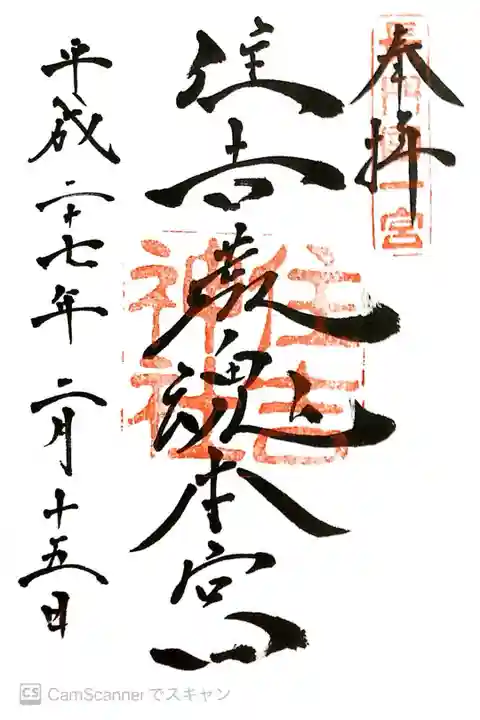 奉拝
長門國一宮
住吉荒魂本宮
住吉神社
平成二十七年二月十五日
CS CamScannerでスキャン